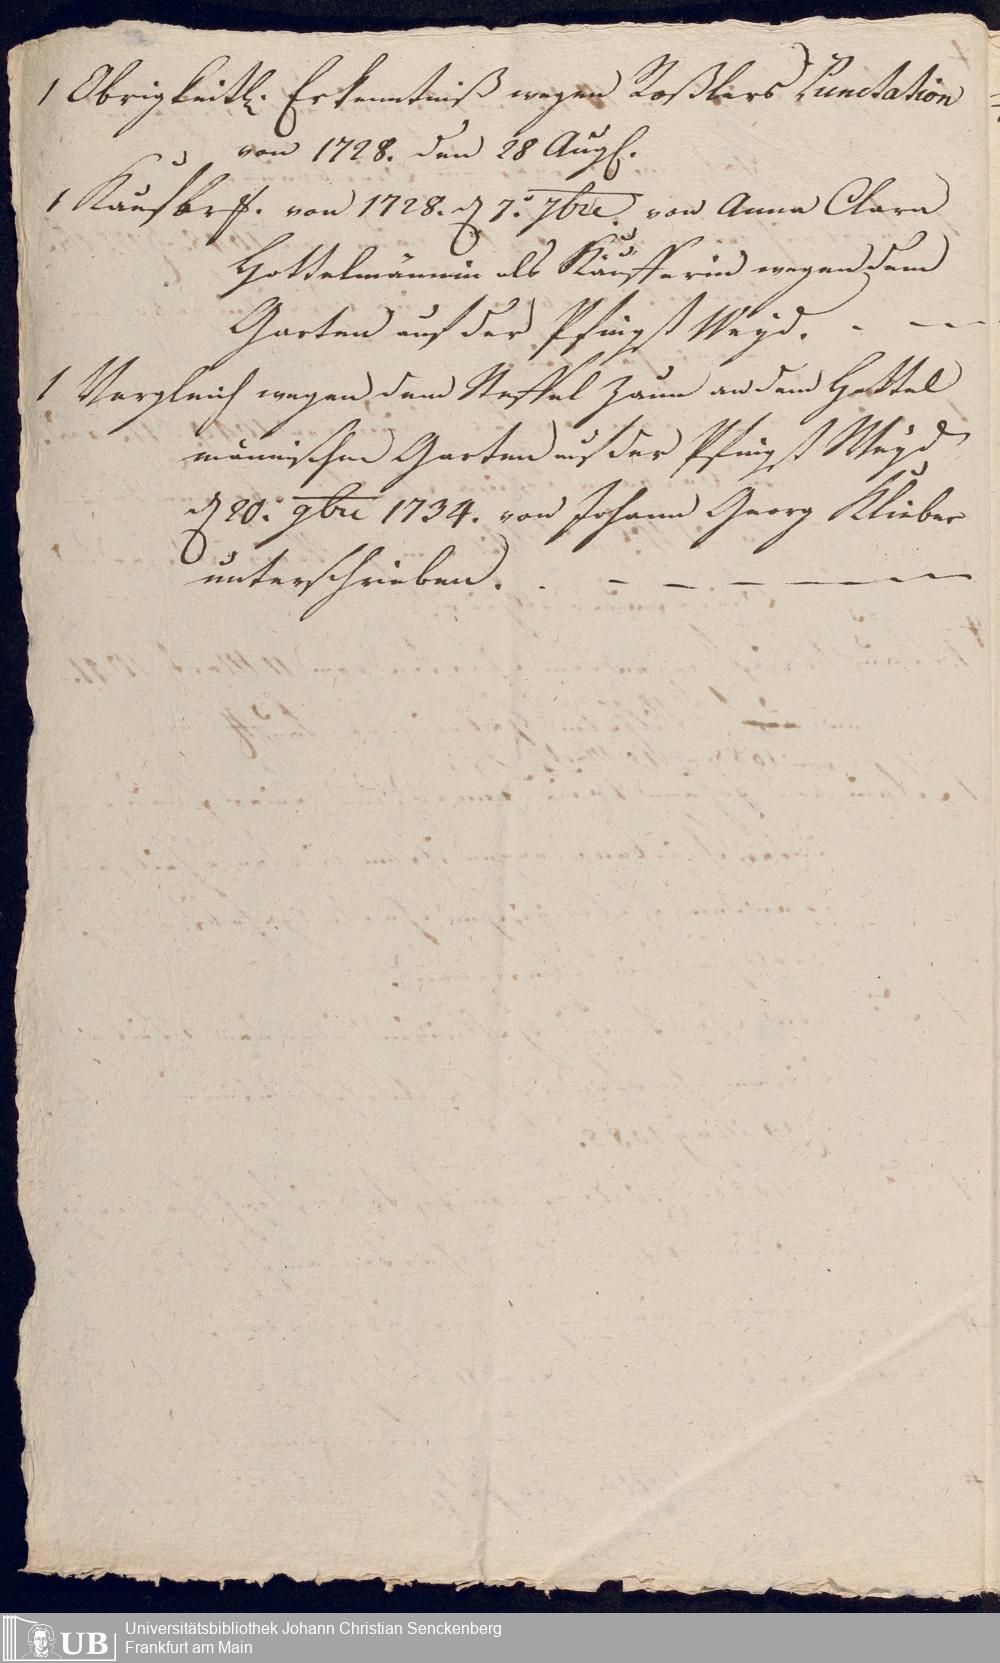 1 Obrigkeitl. Erkenntniß wegen Roßlers Punctation
von 1728. den 28 Aug.
1 Kaufbrf. von 1728. d 7. 7bre. von Anna Clara
Hottelmännin als Käufferin wegen dem
Garten auf der Pfingst Weyd. - — —
1 Vergleich wegen dem Steffel Zaun an dem Hottel
männischen Garten auf der Pfingst Weyd
d 20. 9bre 1734. von Johann Georg Klieber
unterschrieben. - — — — — —
Universitätsbibliothek Johann Christian Senckenberg
UB Frankfurt am Main